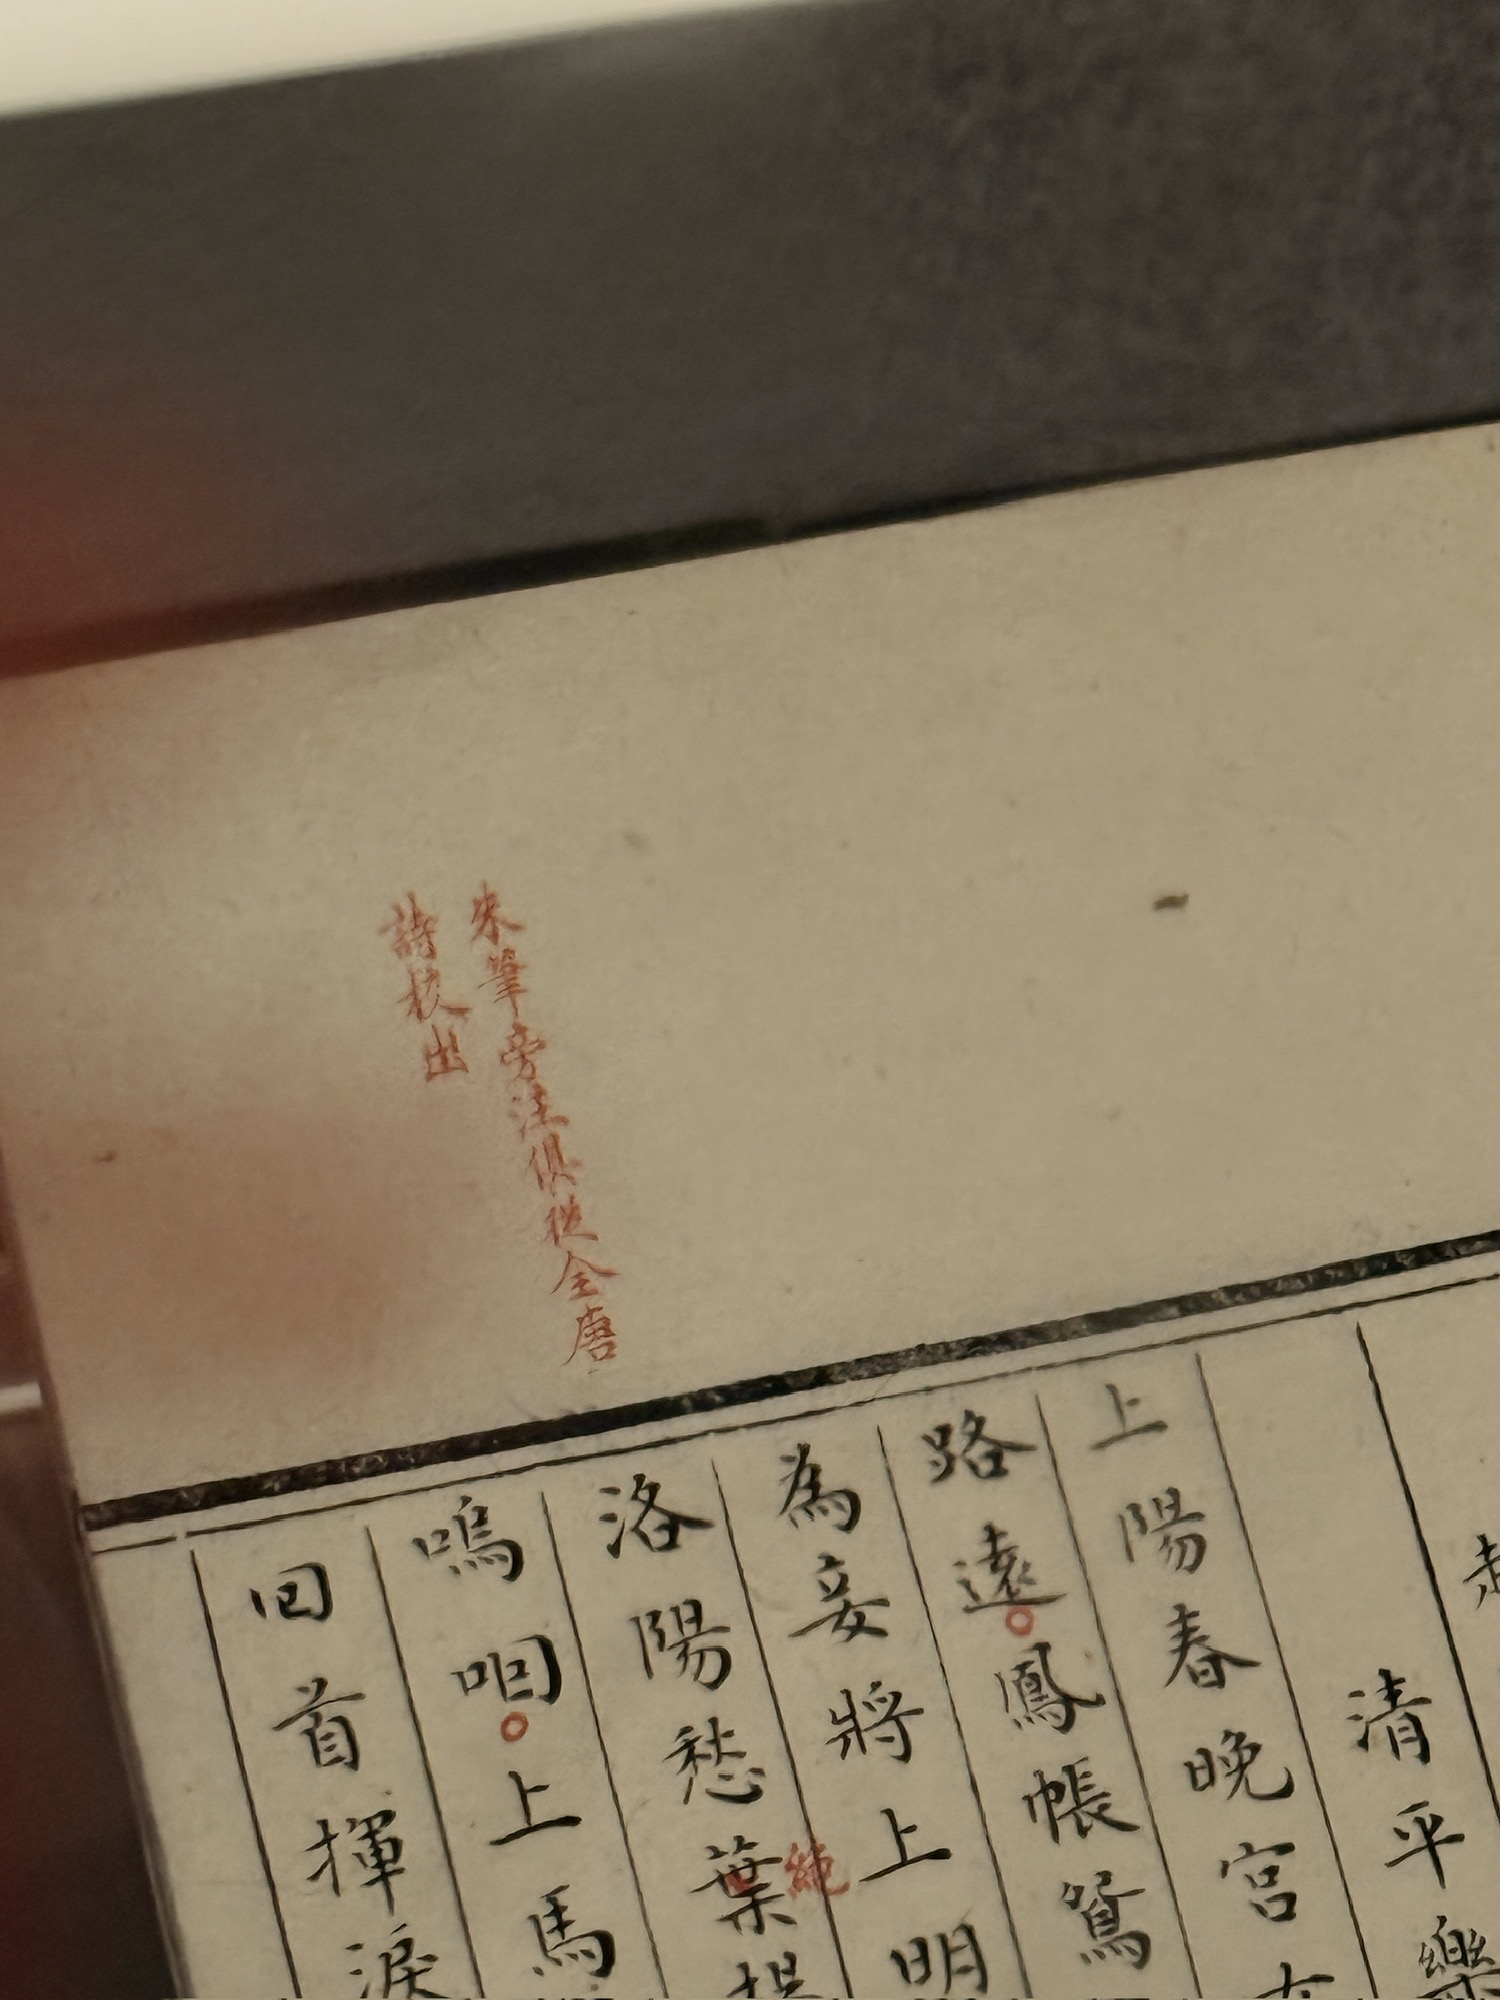 朱筆旁注俱從全唐
詩校出
清平樂
上陽春晚宮
路遠鳳帳鴛
為妾將上明
洛陽愁葉
絶
嗚咽上馬
回首揮淚